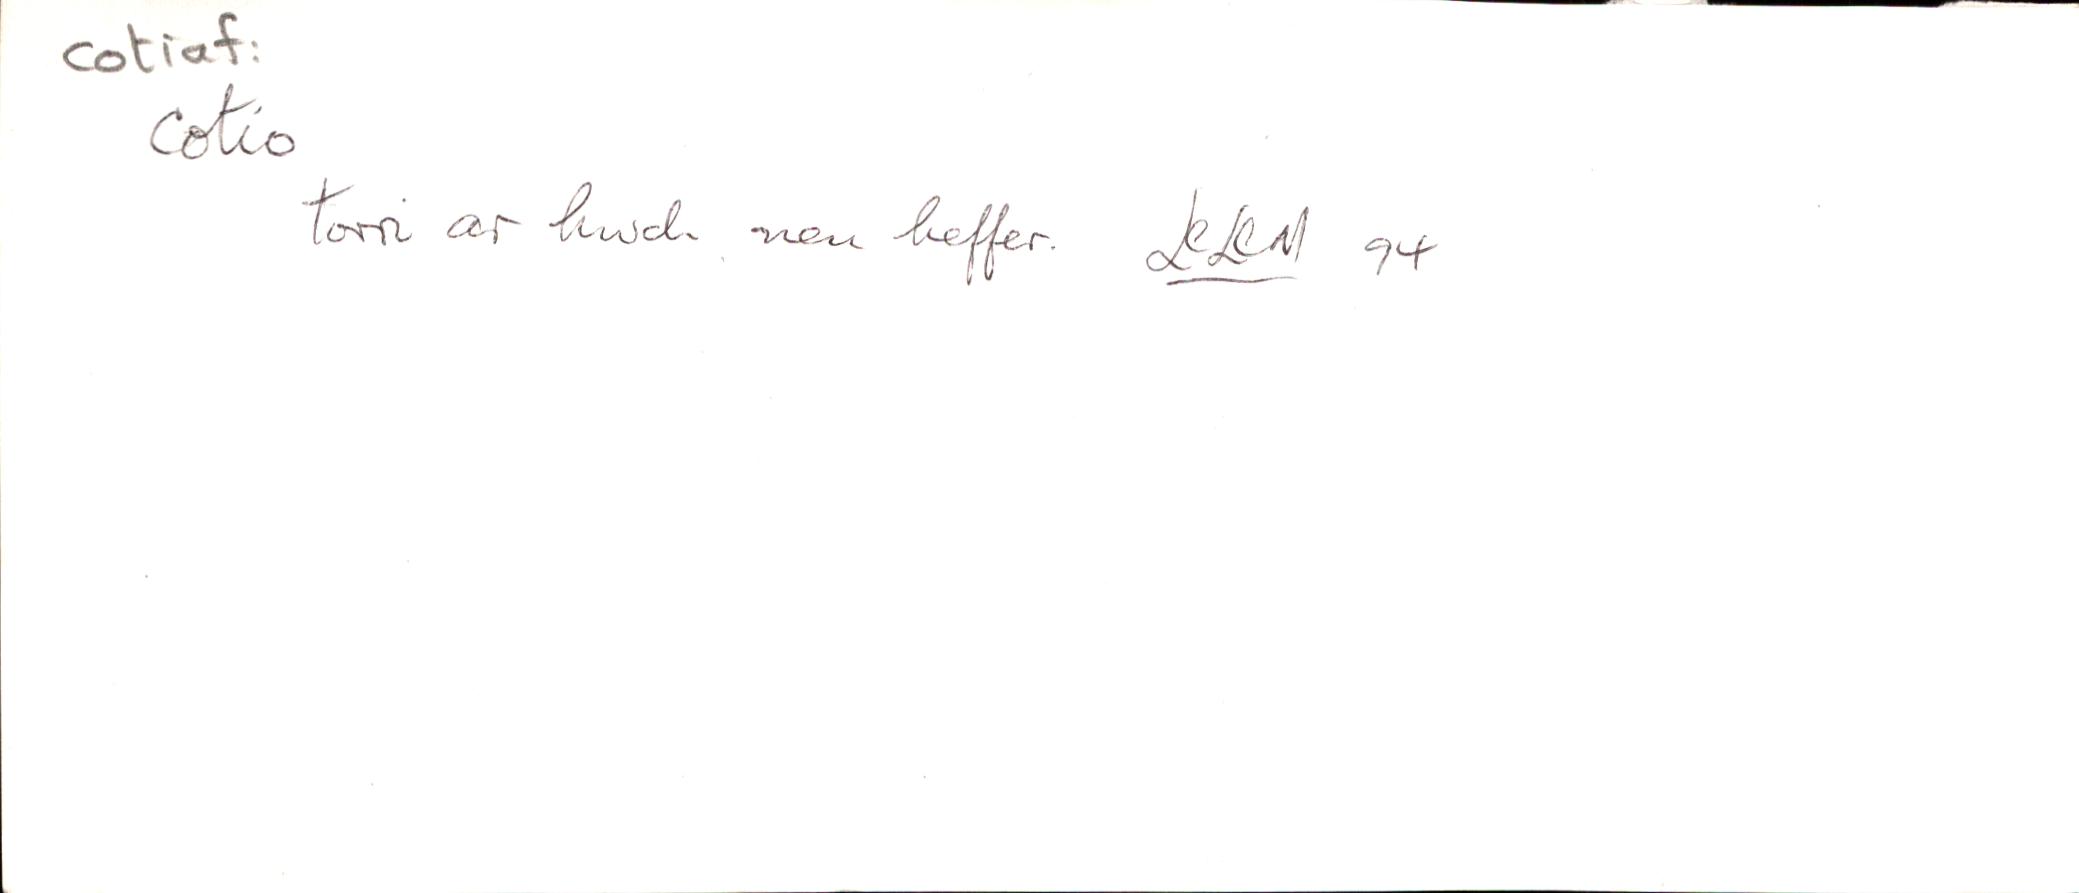 cotiaf:
cotio
torri ar hwch neu heffer. LlLlM 94